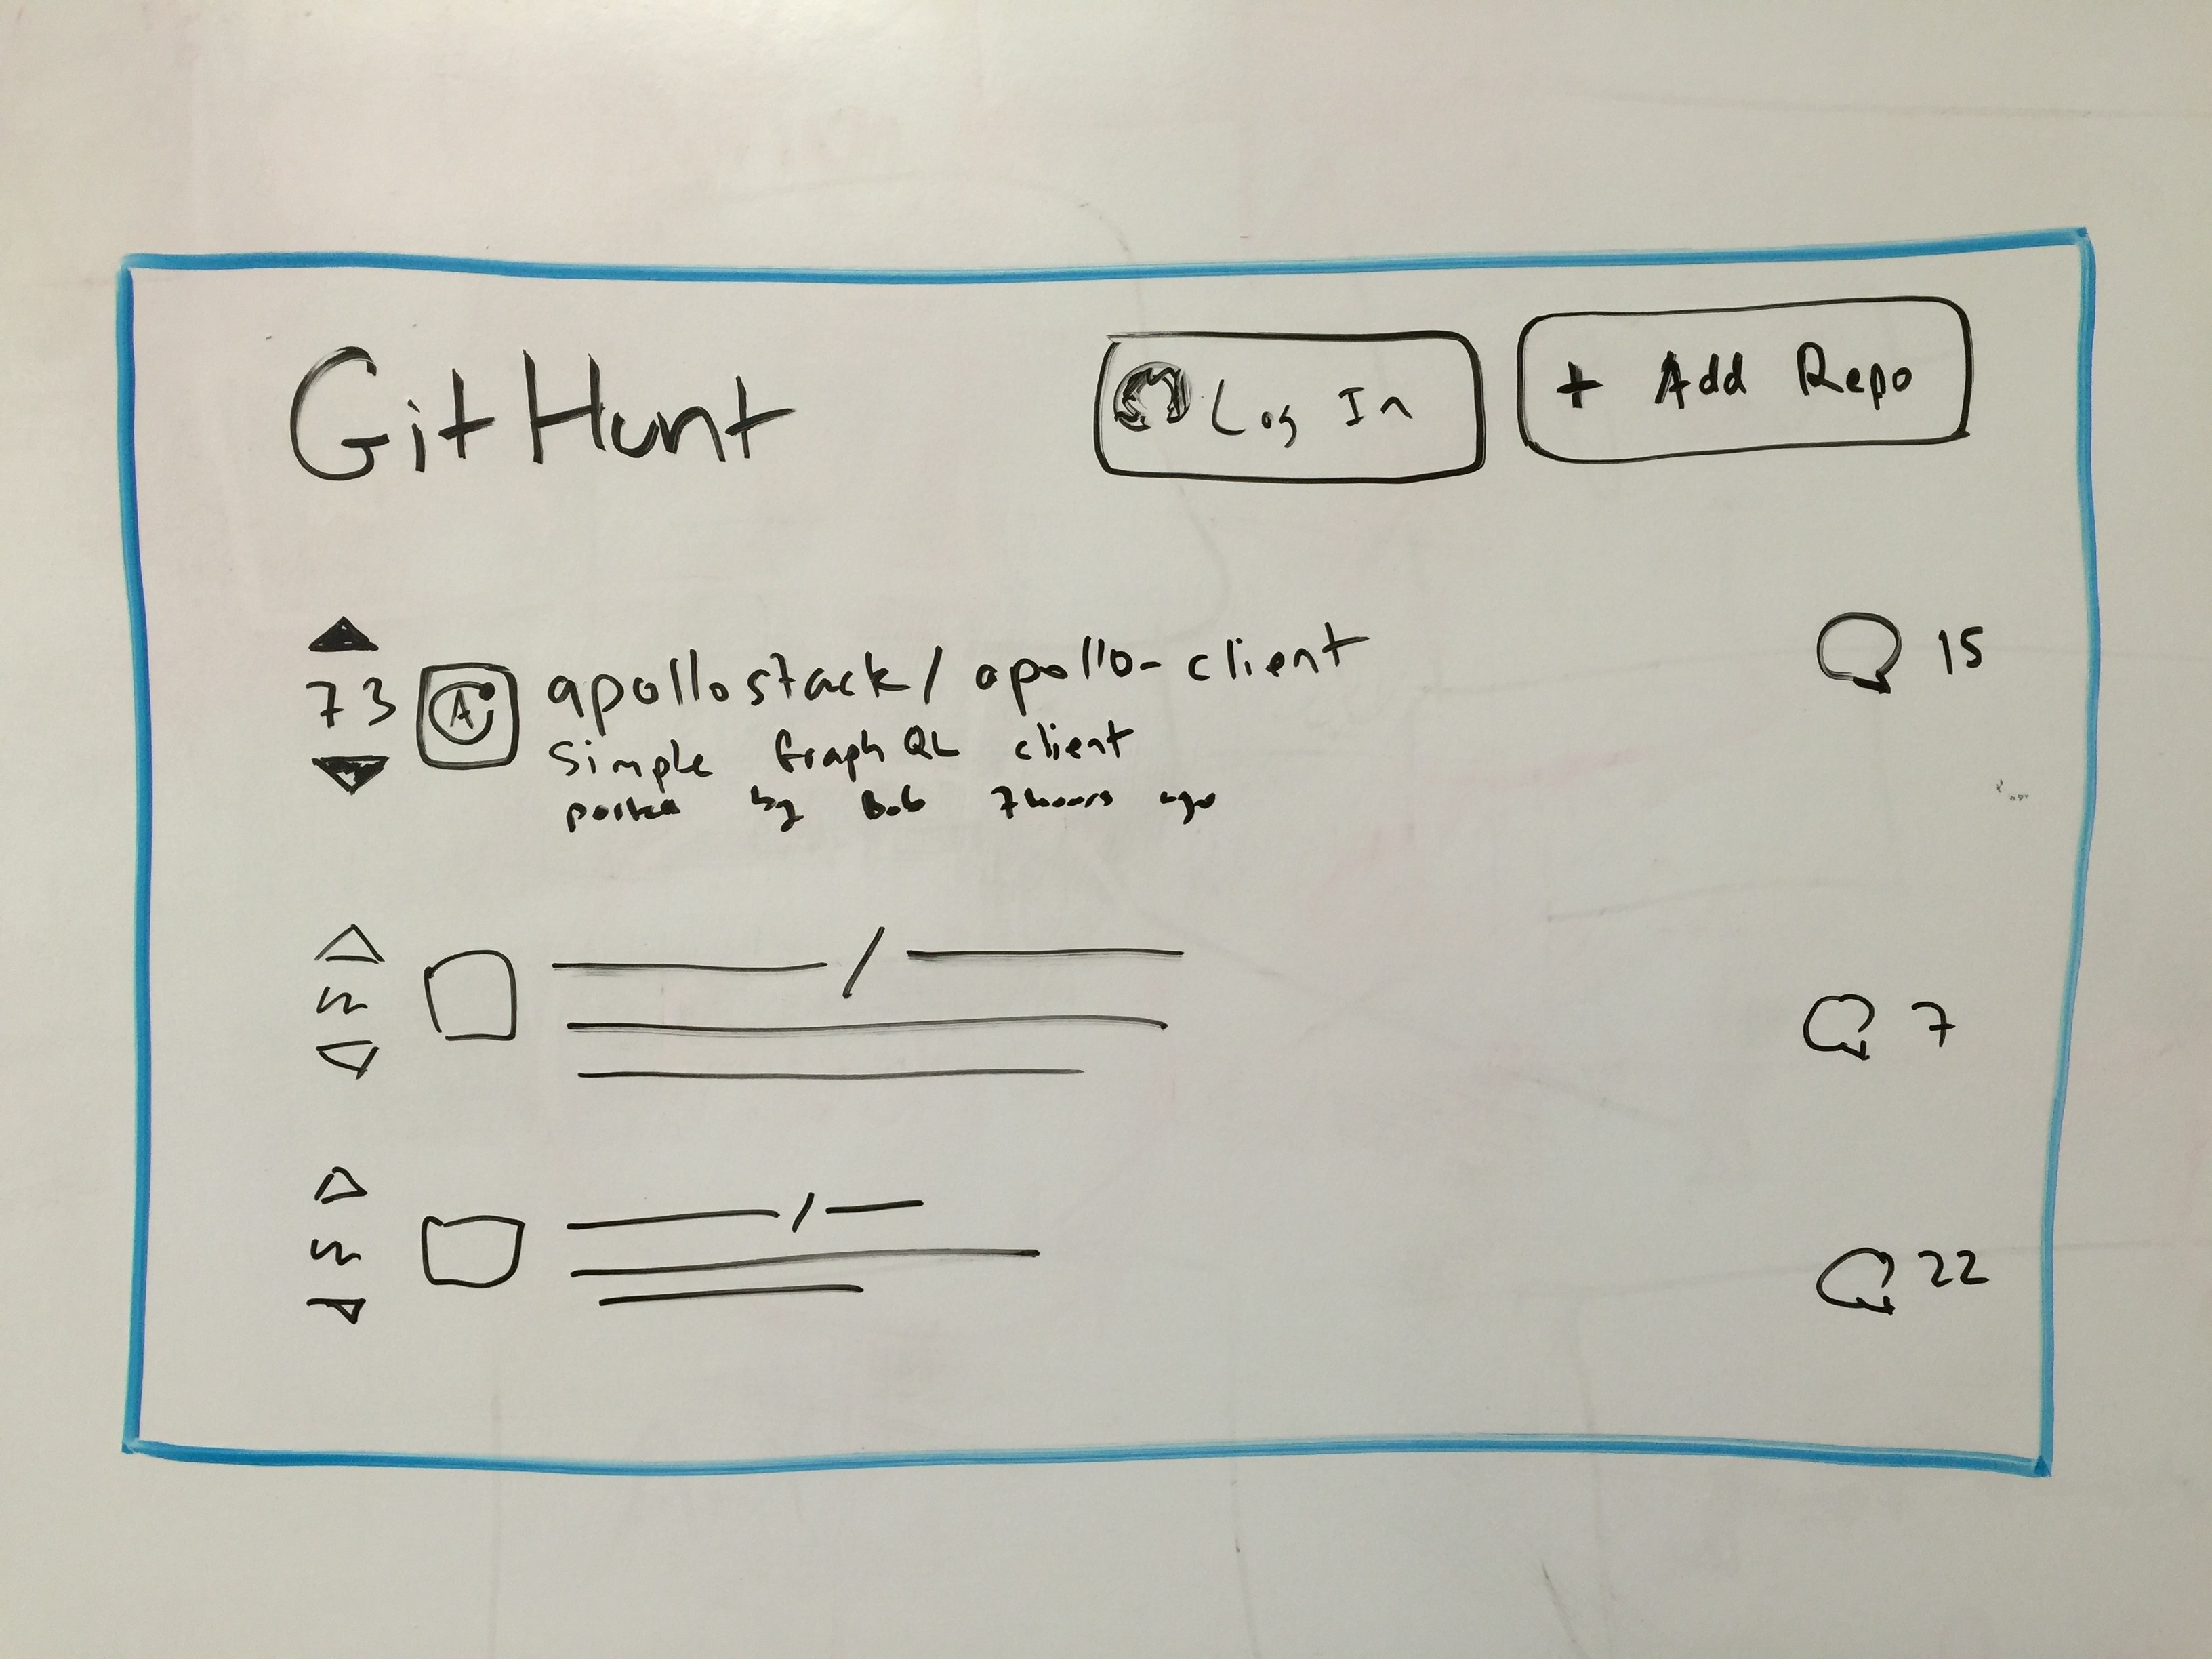 GitHunt
Log In
+ Add Repo
73
A
apollostack/apollo-client
Simple GraphQL client
posted by Bob 7hours ago
15
7
22